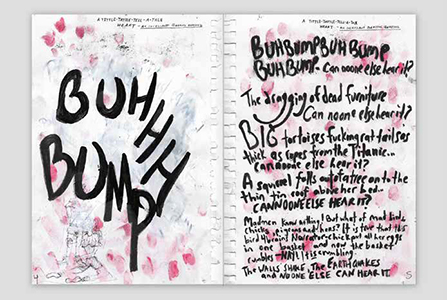 A TITTLE-TATTLE-TELL-A-TALE
HEART
BUHHH
BUMP
A TITTLE-TATTLE-TELL-A-TALE
HEART
BUHBUMPBUHBUMP
BUHBUMP.. Can noone else hear it?
The dragging of dead furniture
Can noone else hear it?
BIG tortoises fucking rat tails as
thick as ropes from the Titanic...
can noone else hear it?
A squirrel falls outta tree on to the
thin tin roof above her bed...
CANNOONE ELSE HEAR IT?
Madmen know nothing! But what of mad
chicks, and hens? It is true that this
bird has put all her eggs
in one basket and now the basket
crumbles. it is crumbling.
The WALLS SHAKE, The EARTHQUAKES
and NOONE ELSE CAN HEAR IT.
5